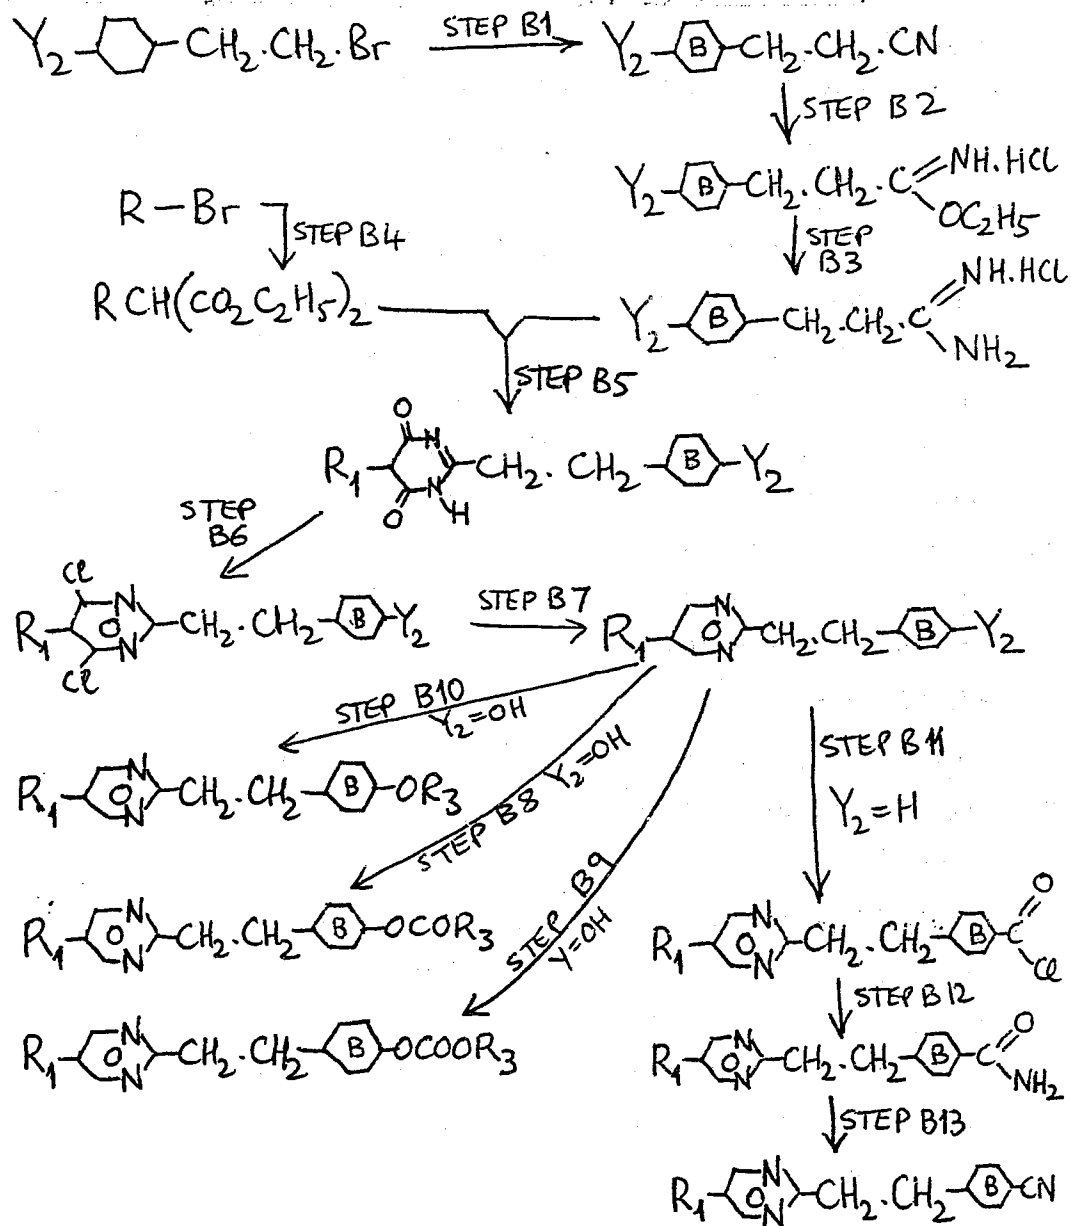 Y2-⬡-CH2.CH2.Br STEP B1 Y2-B-CH2.CH2.CN
STEP B2
Y2-B-CH2.CH2.C=NH.HCl
OC2H5
R-Br
STEP B4
STEP
B3
RCH(CO2C2H5)2
Y2-B-CH2.CH2.C=NH.HCl
NH2
STEP B5
O
R1 N CH2.CH2-B-Y2
O N H
STEP
B6
Cl
R1 O N N CH2.CH2-B-Y2
Cl
STEP B7
R1 O N N CH2.CH2-B-Y2
STEP B10
Y2=OH
R1 O N N CH2.CH2-B-OR3
STEP B8 Y2=OH
STEP B11
Y2=H
R1 O N N CH2.CH2-B-OCOR3
STEP B9
Y=OH
R1 O N N CH2.CH2-B-OCOOR3
R1 O N N CH2.CH2-B-C=O
Cl
STEP B12
R1 O N N CH2.CH2-B-C=O
NH2
STEP B13
R1 O N N CH2.CH2-B-CN